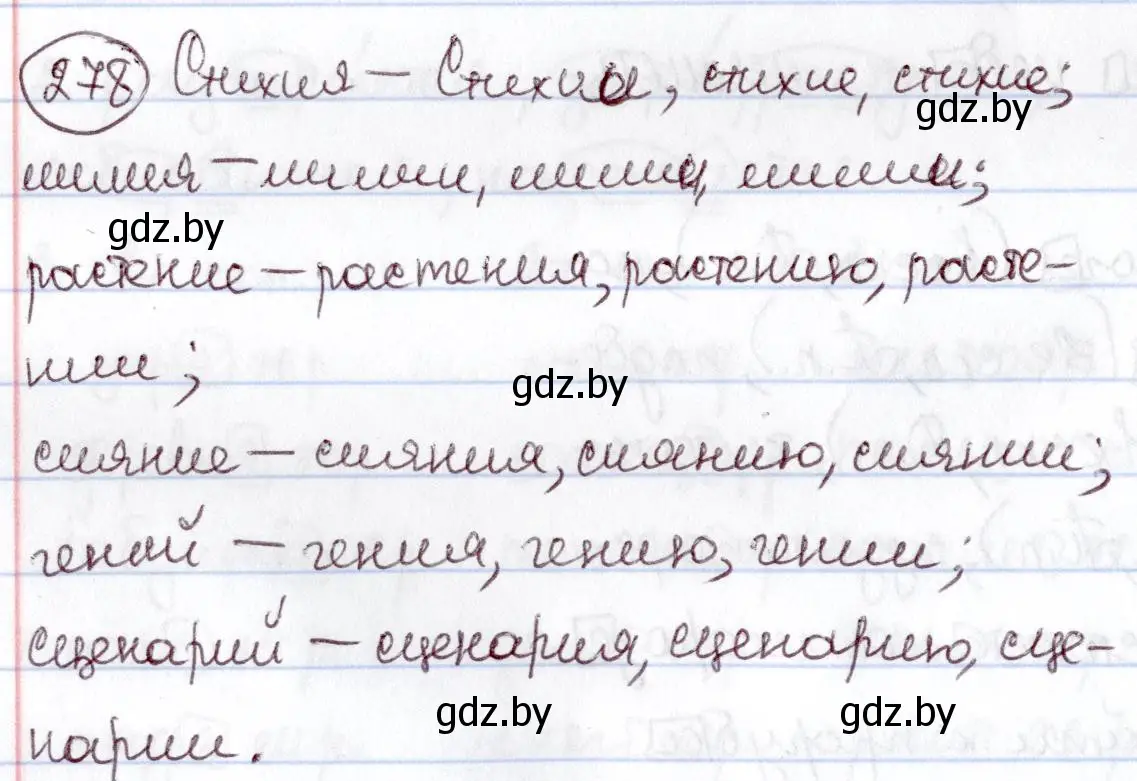 278 Стихия – Стихии, стихие, стихие;
gdz.by
линия – линии, линии, линии;
gdz.by
растение – растения, растению, расте-
нии;
gdz.by
сияние – сияния, сиянию, сиянии;
гений – гения, гению, гении;
сценарий – сценария, сценарию, сце-
gdz.by gdz.by
нарии.